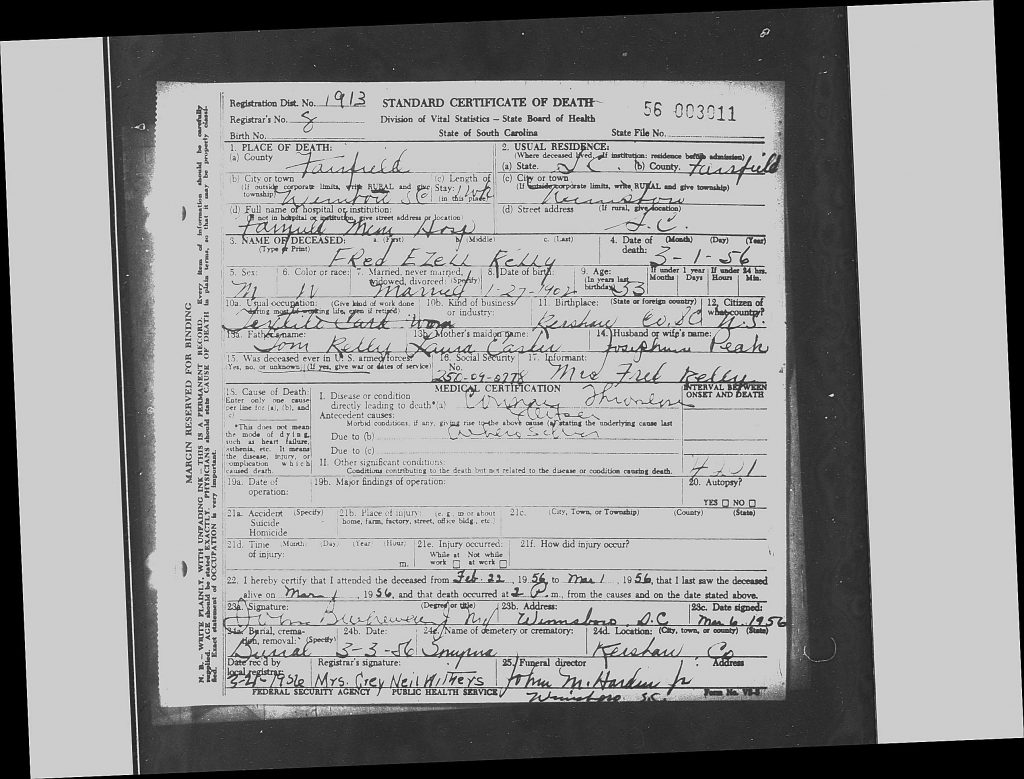 8
Registration Dist. No. 1913 STANDARD CERTIFICATE OF DEATH 56 003011
Registrar's No. 8 Division of Vital Statistics — State Board of Health
Birth No. State of South Carolina State File No.
1. PLACE OF DEATH: 2. USUAL RESIDENCE:
(Where deceased lived, If institution: residence before admission)
(a) County Fairfield (a) State. S.C. (b) County. Fairfield
(b) City or town (c) Length of (c) City or town
(If outside corporate limits, write RURAL and give township) Stay: 1 wk (If outside corporate limits, write RURAL and give township)
(in this place)
(d) Full name of hospital or institution: (d) Street address (If rural, give location)
(If not in hospital or institution, give street address or location)
Hosp S.C.
3. NAME OF DECEASED: a. (First) b. (Middle) c. (Last) 4. Date of (Month) (Day) (Year)
(Type or Print) FRed EZell Kelly death: 3-1-56
5. Sex: 6. Color or race: 7. Married, never married, widowed, divorced: (Specify) 8. Date of birth: 9. Age: (In years last birthday) If under 1 year If under 24 hrs.
Months Days Hours Min.
M Married 1-27-1902 53
10a. Usual occupation: (Give kind of work done during most of working life, even if retired) 10b. Kind of business or industry: 11. Birthplace: (State or foreign country) 12. Citizen of what country?
Kershaw Co, SC U.S.
13a. Father's name: 13b. Mother's maiden name: 14. Husband or wife's name:
Tom Kelly Laura Josephine Peak
15. Was deceased ever in U. S. armed forces? 16. Social Security 17. Informant:
Yes, no, or unknown (If yes, give war or dates of service) No. 250-09-0778 Mrs Fred Kelly
MEDICAL CERTIFICATION INTERVAL BETWEEN ONSET AND DEATH
18. Cause of Death.
Enter only one cause per line for (a), (b), and c)
I. Disease or condition
directly leading to death*(a) Coronary
Antecedent causes:
Morbid conditions, if any, giving rise to the above cause (a) stating the underlying cause last
*This does not mean the mode of dying, such as heart failure, asthenia, etc. It means the disease, injury, or complication which caused death.
Due to (b)
Due to (c)
II. Other significant conditions:
Conditions contributing to the death but not related to the disease or condition causing death. 4201
19a. Date of operation: 19b. Major findings of operation: 20. Autopsy?
YES NO
21a. Accident (Specify) Suicide Homicide 21b. Place of injury: (e. g., in or about home, farm, factory, street, office bldg., etc.) 21c. (City, Town, or Township) (County) (State)
21d. Time (Month) (Day) (Year) (Hour) 21e. Injury occurred: 21f. How did injury occur?
of injury: m. While at work Not while at work
22. I hereby certify that I attended the deceased from Feb. 22, 1956, to Mar 1, 1956, that I last saw the deceased
alive on Mar 1, 1956, and that death occurred at 2 P. m., from the causes and on the date stated above.
23a. Signature: (Degree or title) 23b. Address: 23c. Date signed:
Winnsboro S.C Mar 6. 1956
24a. Burial, cremation, removal: (Specify) 24b. Date: 24c. Name of cemetery or crematory: 24d. Location: (City, town, or county) (State)
Burial 3-3-56 Smyrna Kershaw Co
Date rec'd by local registrar: Registrar's signature: 25. Funeral director Address
3-21-1956 Mrs. Grey Neil Withers John M. Harden Jr
FEDERAL SECURITY AGENCY PUBLIC HEALTH SERVICE Winnsboro S.C. Form No. VS-5
MARGIN RESERVED FOR BINDING
N. B. — WRITE PLAINLY, WITH UNFADING INK — THIS IS A PERMANENT RECORD. Every item of information should be carefully supplied. AGE should be stated EXACTLY. PHYSICIANS should state CAUSE OF DEATH in plain terms, so that it may be properly classified. Exact statement of OCCUPATION is very important.